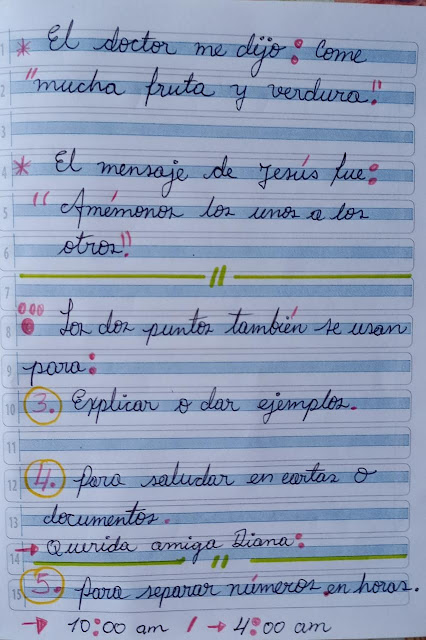 * El doctor me dijo: Come
"mucha fruta y verdura."
* El mensaje de Jesús fue:
"Amémonos los unos a los
otros."
Los dos puntos también se usan
para:
3. Explicar o dar ejemplos.
4. Para saludar en cartas o
documentos.
→ Querida amiga Diana:
5. Para separar números en horas.
→ 10:00 am / → 4:00 am
1
2
3
4
5
6
7
8
9
10
11
12
13
14
15